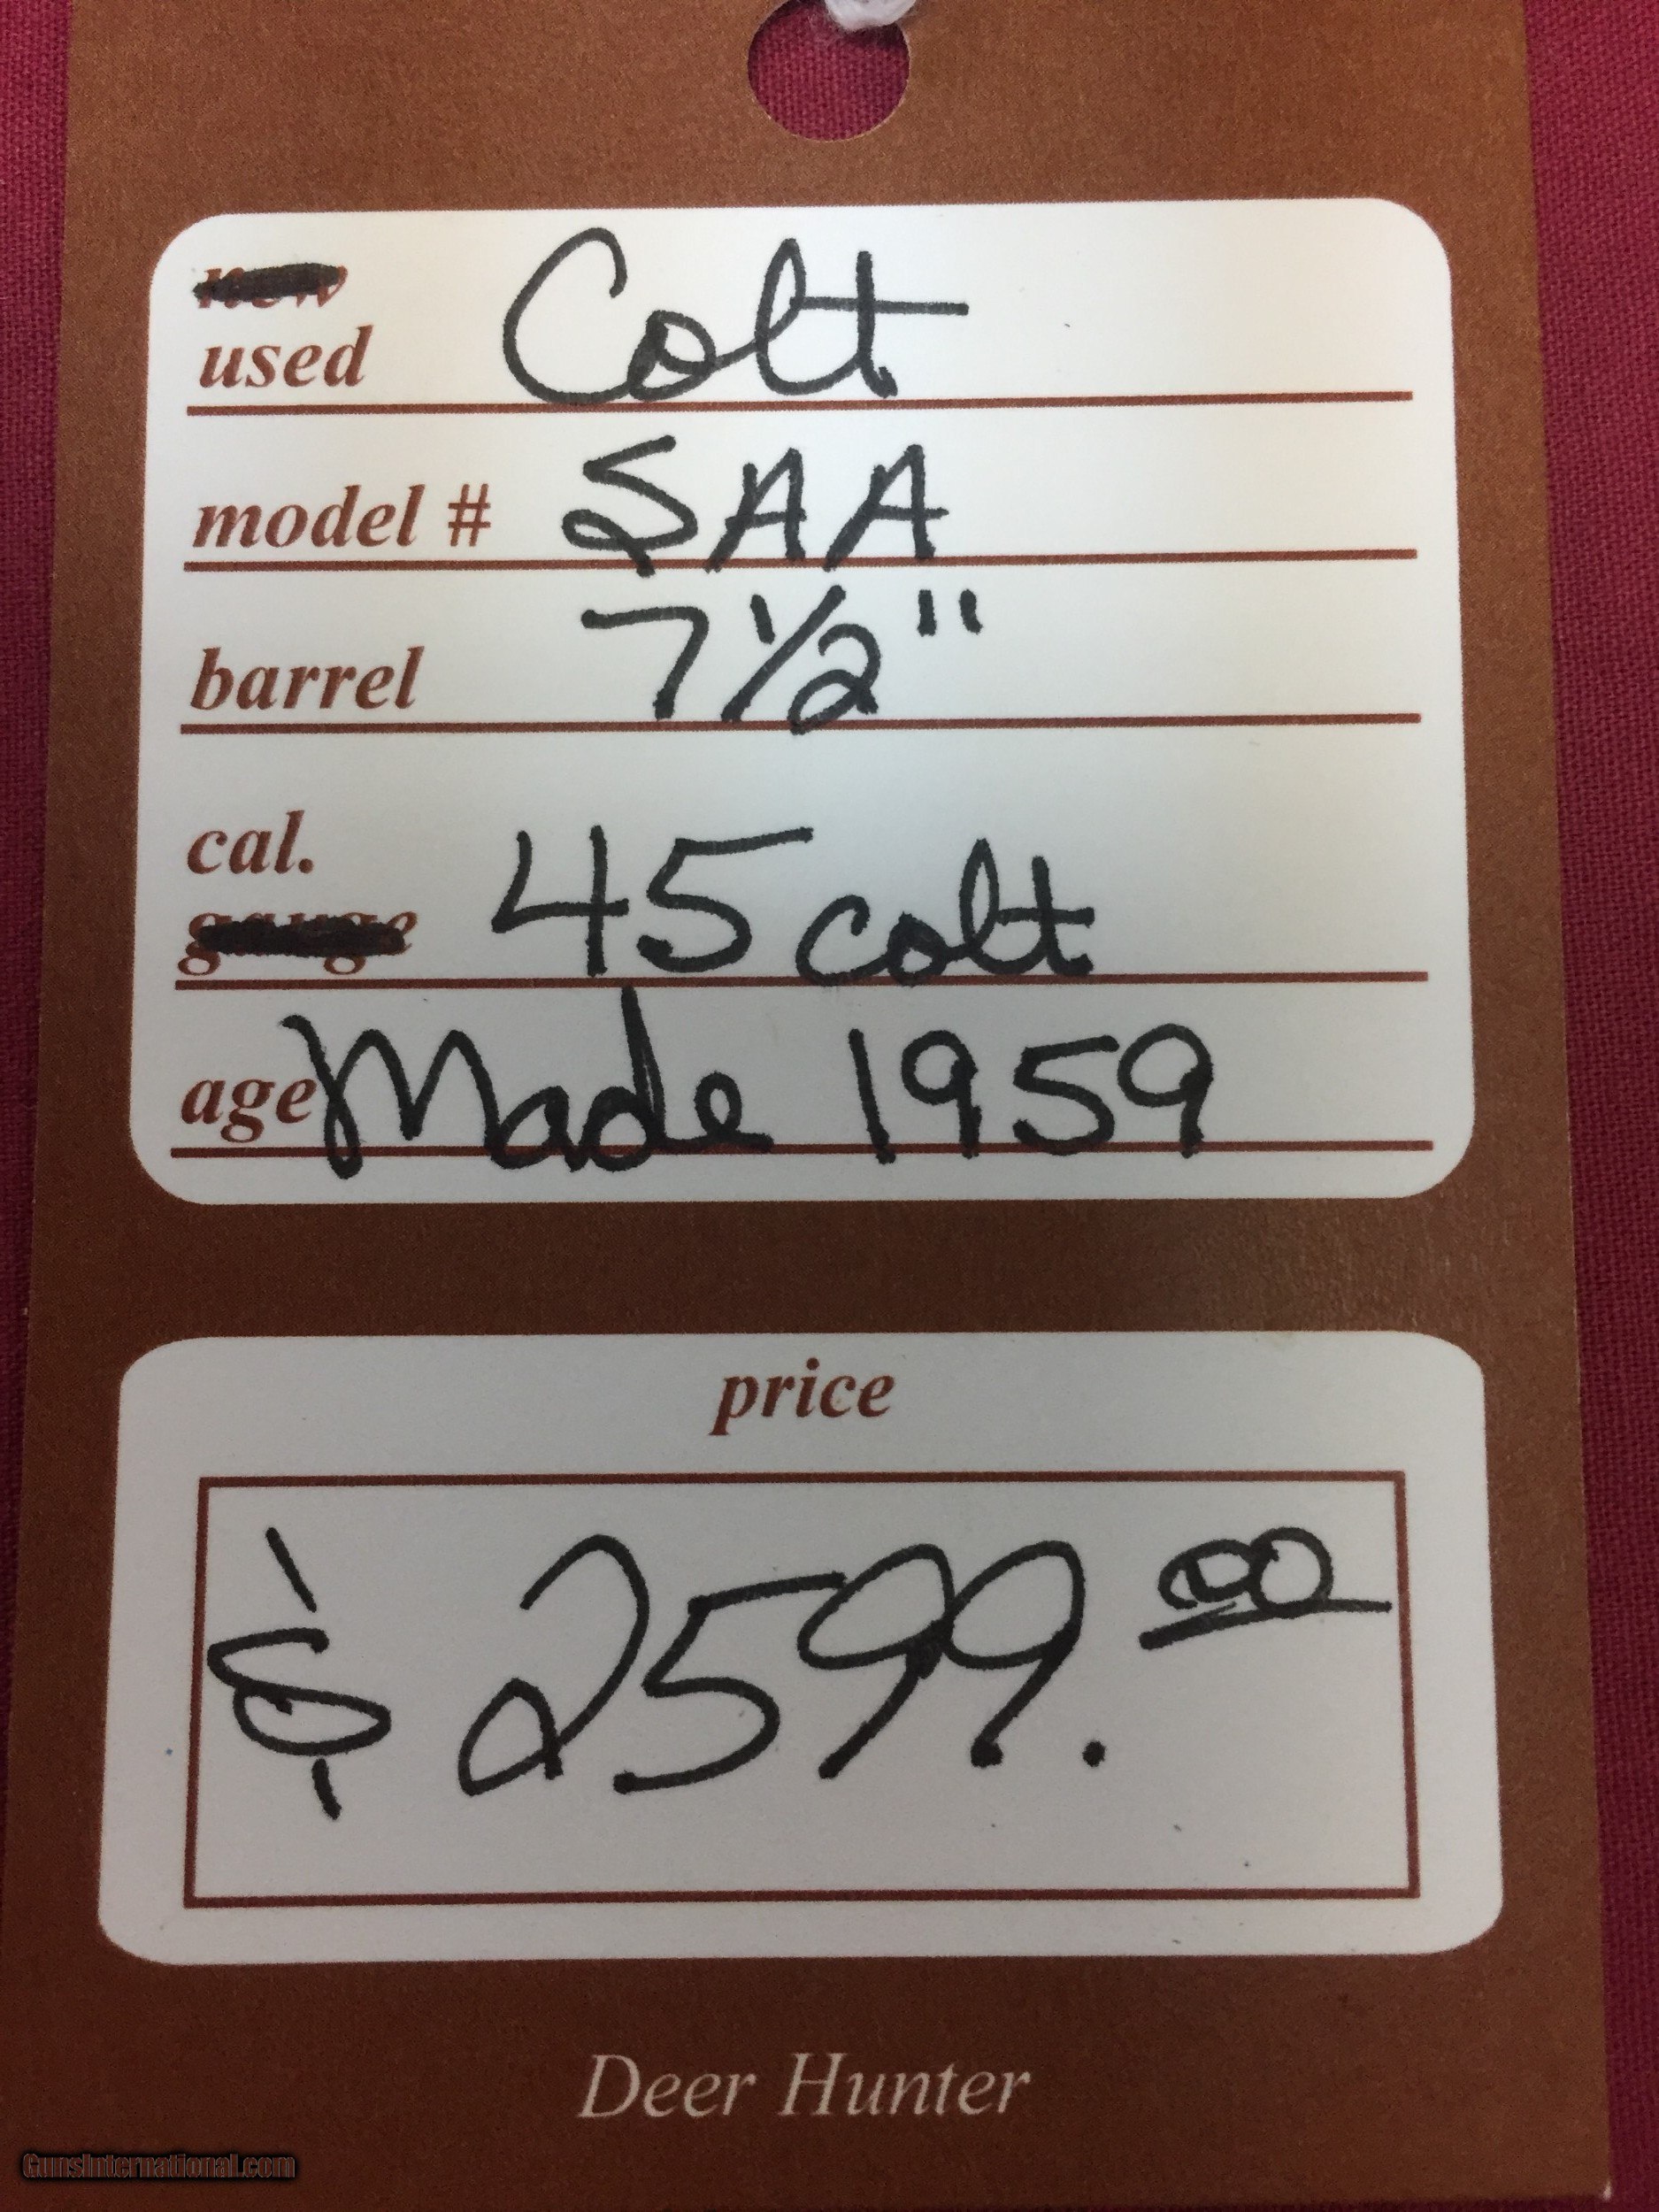 new Colt
used
model # SAA
barrel 7 1/2"
cal. 45 colt
gauge
age Made 1959
price
$ 2599.00
Deer Hunter
GunsInternational.com